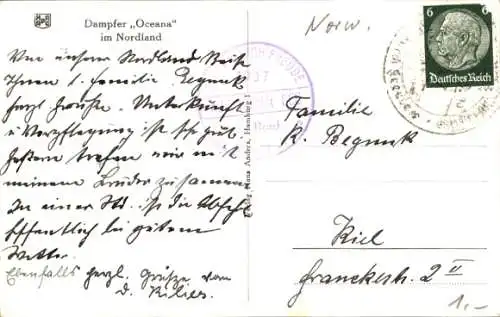 Dampfer „Oceana"
im Nordland
Von unserer Nordland Reise
Ihnen u. Familie Begunk
herzl. Grüße. Unterkunft
u. Verpflegung ist sehr gut.
Gestern trafen wir mit
meinem Bruder zusammen.
In einer Std. ist die Abfahrt
hoffentlich bei gutem
Wetter.
Ebenfalls herzl. Grüße von
Hans Andres, Hamburg
Norw.
Familie
K. Begunk
Kiel
Franckestr. 2 II
6
Deutsches Reich
1.-